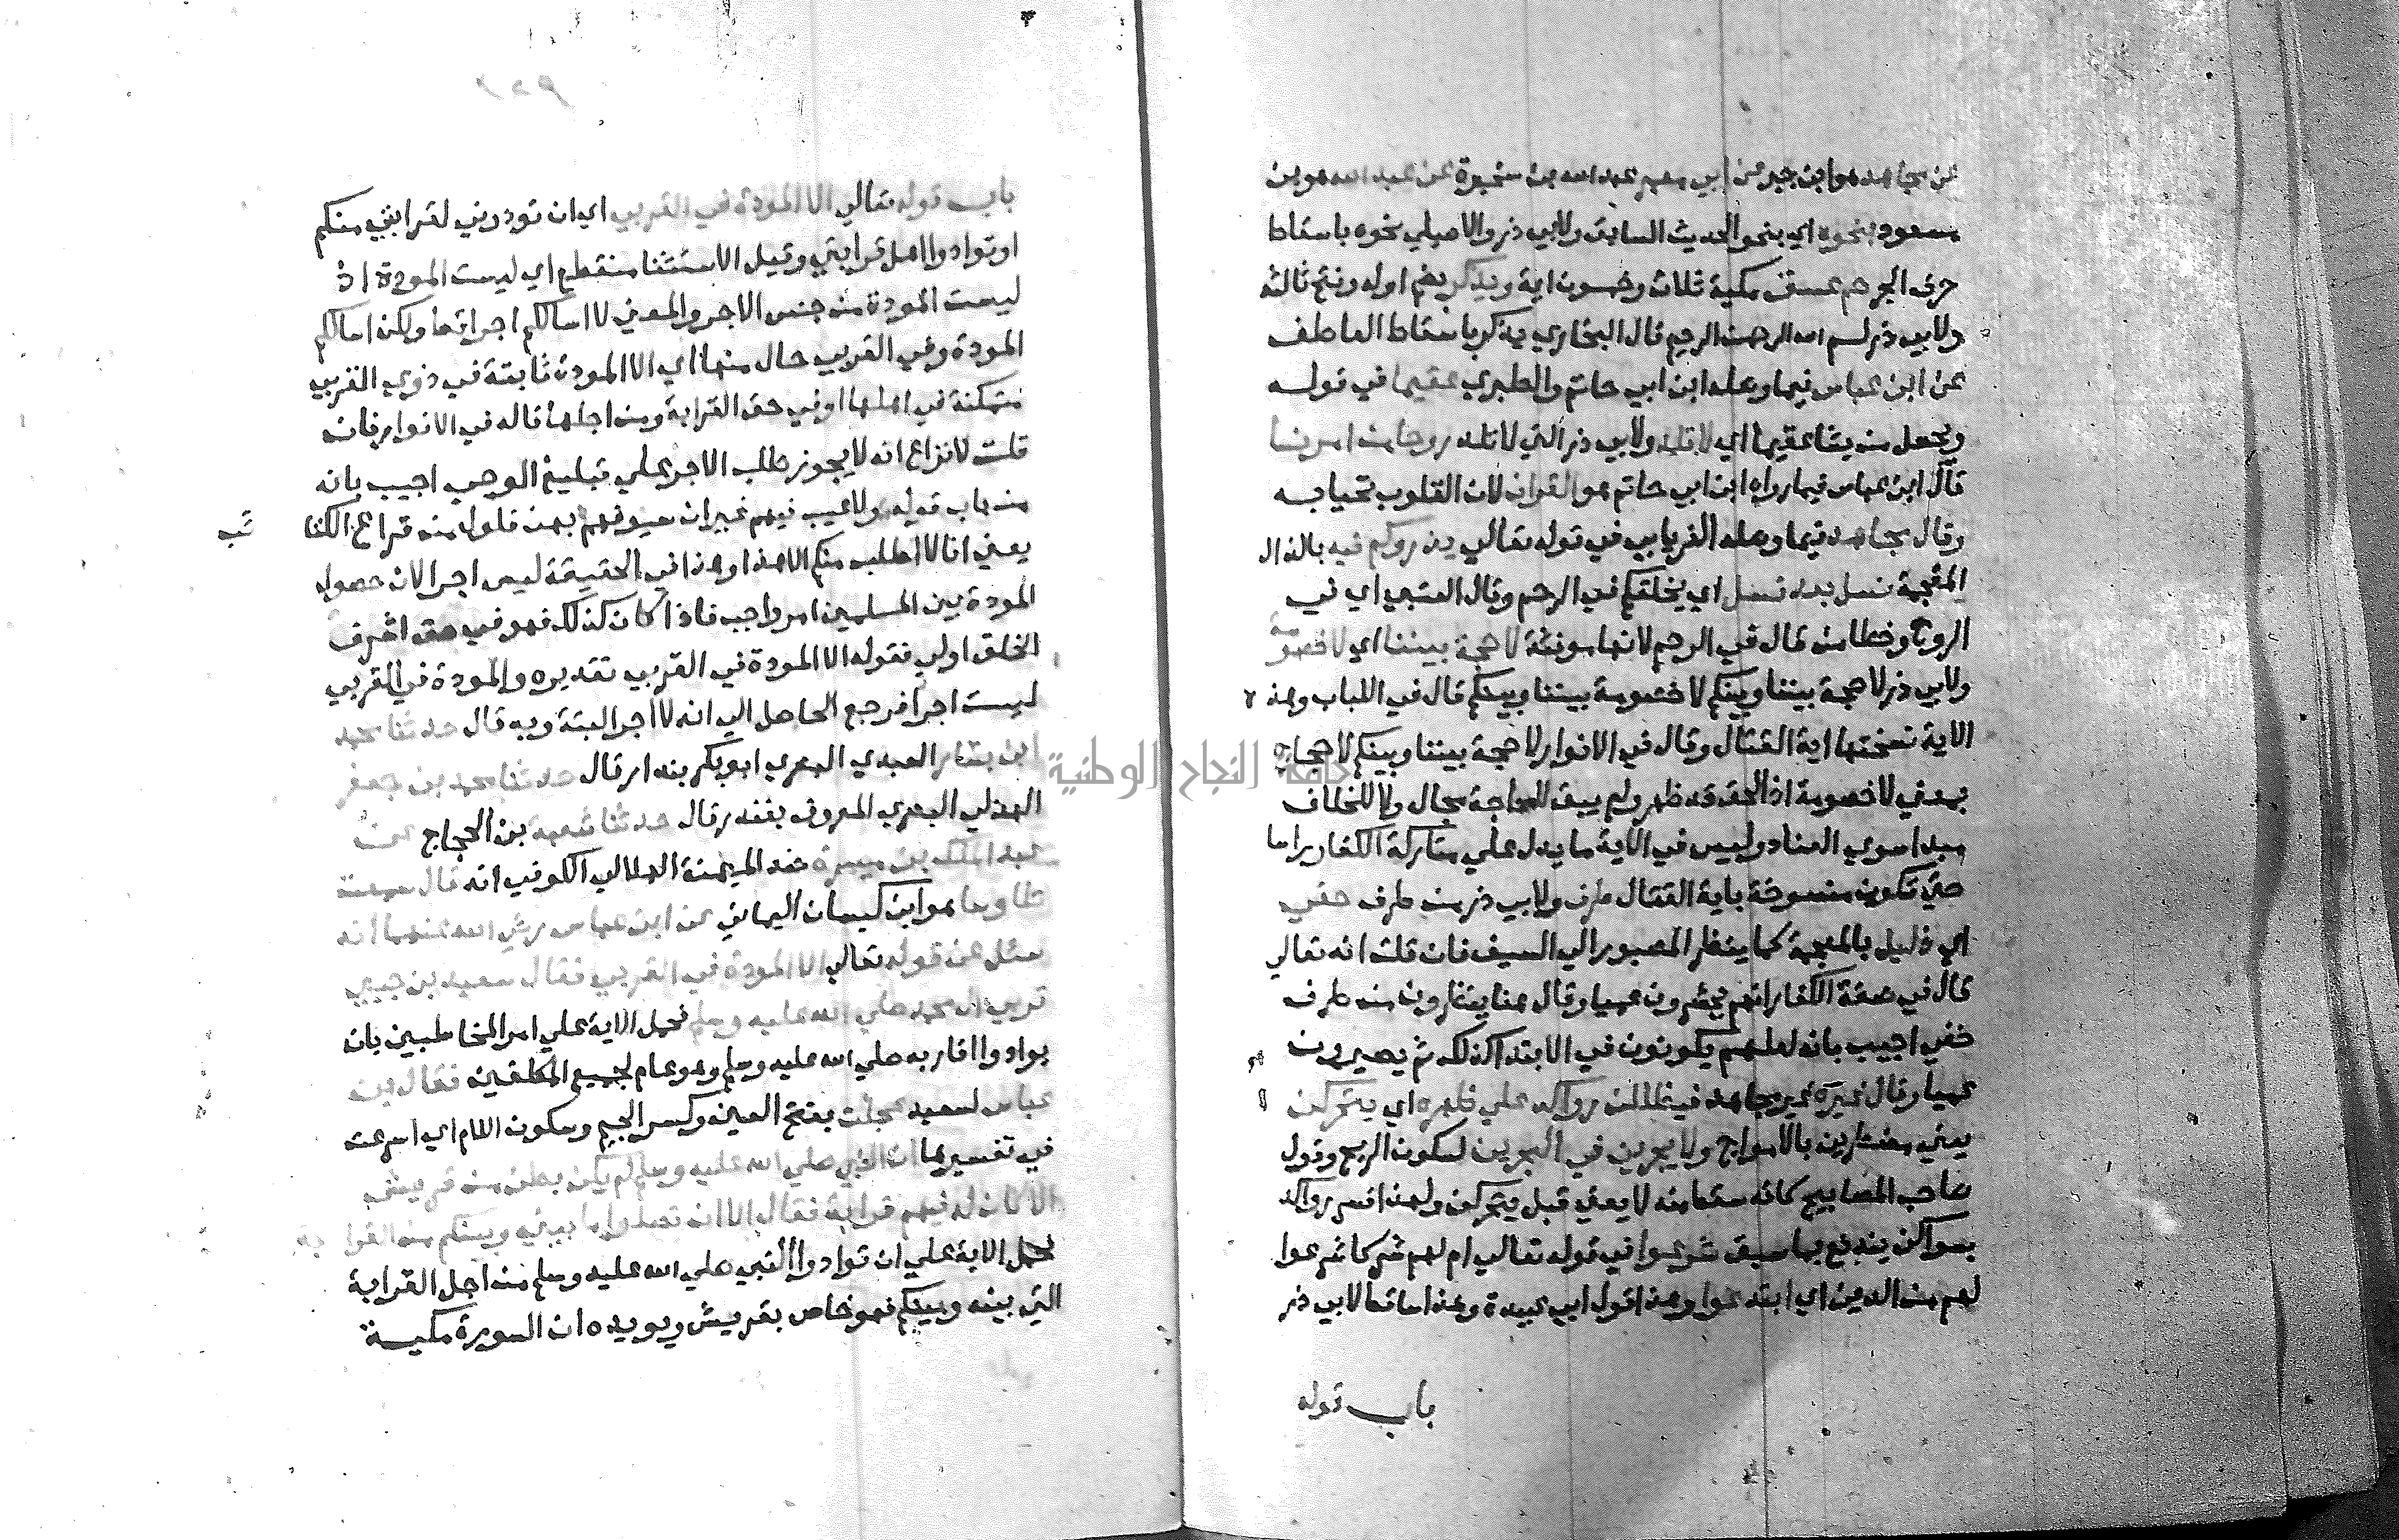 عن مجاهد هو ابن جبر عن ابي معمر عبد الله بن سخبرة عن عبد الله هو بن
مسعود بنحوه اي بنحو الحديث السابق ولابي ذر والاصيلي نحوه باسقاط
حرف الجر حم عسق مكية ثلاث وخمسون اية ويذكر بضم اوله وفتح ثالثه
ولابي ذر بسم الله الرحمن الرحيم قال البخاري يذكر باسقاط العاطف
عن ابن عباس فيما وصله ابن ابي حاتم والطبري عقيما في قوله
ويجعل من يشا عقيما اي لا تلد ولابي ذر التي لا تلد روحا من امرنا
قال ابن عباس فيما رواه ابن ابي حاتم هو القران لان القلوب تحيا به
وقال مجاهد فيما وصله الفريابي في قوله تعالي يذروكم فيه بالذال
المعجمة نسل بعد نسل اي يخلقكم في الرحم وقال القتبي اي في
الروج وخطا من قال في الرحم لانها مونثة لا حجة بيننا اي لا خصومة
ولابي ذر لا حجة بيننا وبينكم لا خصومة بيننا وبينكم قال في اللباب وهذه
الاية نسختها اية القتال وقال في الانوار لا حجة بيننا وبينكم لا حجاج
بمعني لا خصومة اذ الحق قد ظهر ولم يبق للمحاجة مجال ولا للخلاف
مبدا سوي العناد وليس في الاية ما يدل علي متاركة الكفار راسا
حتي تكون منسوخة باية القتال طرف ولابي ذر من طرف خفي
اي ذليل بالمعجمة كما ينظر المصبور الي السيف فان قلت انه تعالي
قال في صفة الكفار انهم يحشرون عميا وقال هنا ينظرون من طرف
خفي اجيب بانه لعلهم يكونون في الابتدا كذلك ثم يصيرون
عميا وقال غيره غير مجاهد فيظللن رواكد علي ظهره اي يتحركن
يعني يضطربن بالامواج ولا يجرين في البحرين لسكون الريح وقول
صاحب المصابيح كانه سقط منه لا يعني قبل يتحركن ولهذا فسر رواكد
بسواكن يندفع بما سبق شرعوا في قوله تعالي ام لهم شركا شرعوا
لهم من الدين اي ابتدعوا وهذا قول ابي عبيدة وهذا ساقط لابي ذر
باب قوله
باب قوله تعالي الا المودة في القربي اي ان تودوني لقرابتي منكم
او توادوا اهل قرابتي وقيل الاستثنا منقطع اي ليست المودة اذ
ليست المودة من جنس الاجر والمعني لا اسالكم اجرا قط ولكن اسالكم
المودة وفي القربي حال منها اي الا المودة ثابتة في ذوي القربي
متمكنة في اهلها او في حق القرابة ومن اجلها قاله في الانوار فان
قلت لا نزاع انه لا يجوز طلب الاجر علي تبليغ الوحي اجيب بانه
من باب قوله ولا عيب فيهم غير ان سيوفهم بهن فلول من قراع الكتا ئب
يعني انا لا اطلب منكم الا هذا وهذا في الحقيقة ليس اجرا لان حصول
المودة بين المسلمين امر واجب فاذا كان كذلك فهو في حق اشرف
الخلق اولي فقوله الا المودة في القربي تقديره والمودة في القربي
ليست اجرا فرجع الحاصل الي انه لا اجر البتة وبه قال حدثنا محمد
ابن بشار العبدي البصري ابو بكر بندار قال حدثنا محمد بن جعفر
الهذلي البصري المعروف بغندر قال حدثنا شعبة بن الحجاج عن
عبد الملك بن ميسرة ضد الميمنة الهلالي الكوفي انه قال سمعت
طاوسا هو ابن كيسان اليماني عن ابن عباس رضي الله عنهما انه
سئل عن قوله تعالي الا المودة في القربي فقال سعيد بن جبير
قربي ال محمد صلي الله عليه وسلم فحمل الاية علي امر المخاطبين بان
يوادوا اقاربه صلي الله عليه وسلم وهو عام لجميع المكلفين فقال ابن
عباس لسعيد عجلت بفتح العين وكسر الجيم وسكون اللام اي اسرعت
في تفسيرها ان النبي صلي الله عليه وسلم لم يكن بطن من قريش
الا كان له فيهم قرابة فقال الا ان تصلوا ما بيني وبينكم من القرابة
فحمل الاية علي ان توادوا النبي صلي الله عليه وسلم من اجل القرابة
التي بينه وبينكم فهو خاص بقريش ويويده ان السورة مكية
جامعة النجاح الوطنية